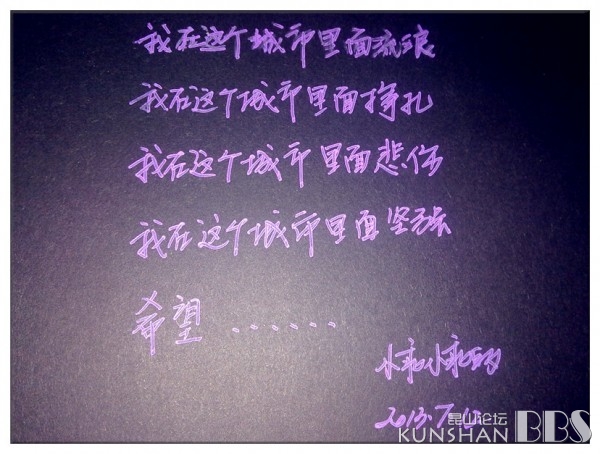 我在这个城市里面流浪
我在这个城市里面挣扎
我在这个城市里面悲伤
我在这个城市里面坚强
希望......
2013.7.
昆山论坛
KUNSHAN BBS